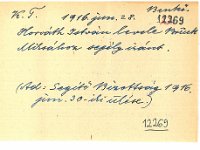 K. T. 1916. jun. 28. Benkő.
12269
Horváth István levele Brück
Miksához segély iránt.
(Ad: Segítő Bizottság 1916.
jun. 30-iki ülése.)
12269